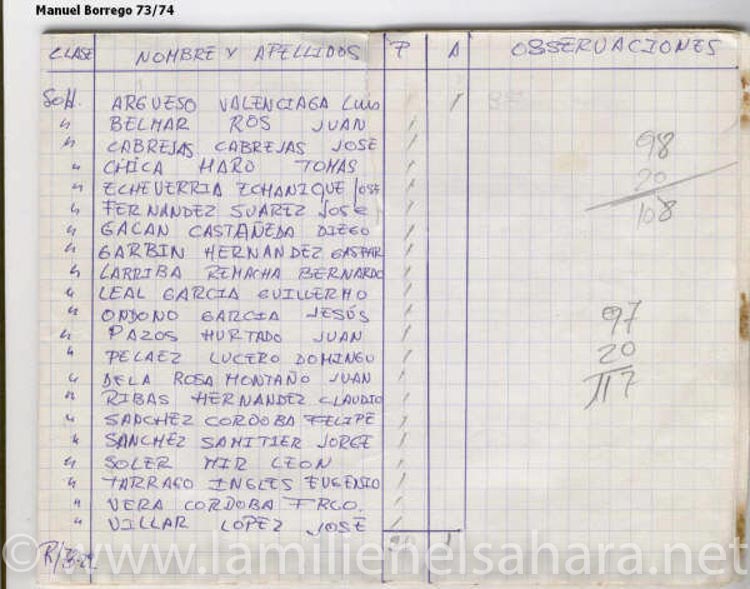 Manuel Borrego 73/74
CLASE NOMBRE Y APELLIDOS P A OBSERVACIONES
ARGUESO VALENCIAGA LUIS / /
" BELMAR ROS JUAN /
" CABREJAS CABREJAS JOSE / 98
" CHICA HARO TOMAS / 20
" ECHEVERRIA ECHANIQUE JOSE / 108
" FERNANDEZ SUAREZ JOSE /
" GACAN CASTAÑEDA DIEGO /
" GARBIN HERNANDEZ GASPAR /
" LARRIBA REMACHA BERNARDO /
" LEAL GARCIA GUILLERMO /
" ONDONO GARCIA JESÚS / 97
" PAZOS HURTADO JUAN /
" PELAEZ LUCERO DOMINGO / 20
" DE LA ROSA MONTAÑO JUAN / 117
" RIBAS HERNANDEZ CLAUDIO /
" SANCHEZ CORDOBA FELIPE /
" SANCHEZ SAMITIER JORGE /
" SOLER MIR LEON /
" TARRAGO INGLES EUGENIO /
" VERA CORDOBA FRCO. /
" VILLAR LOPEZ JOSÉ /
1
© www.lamilienelsahara.net